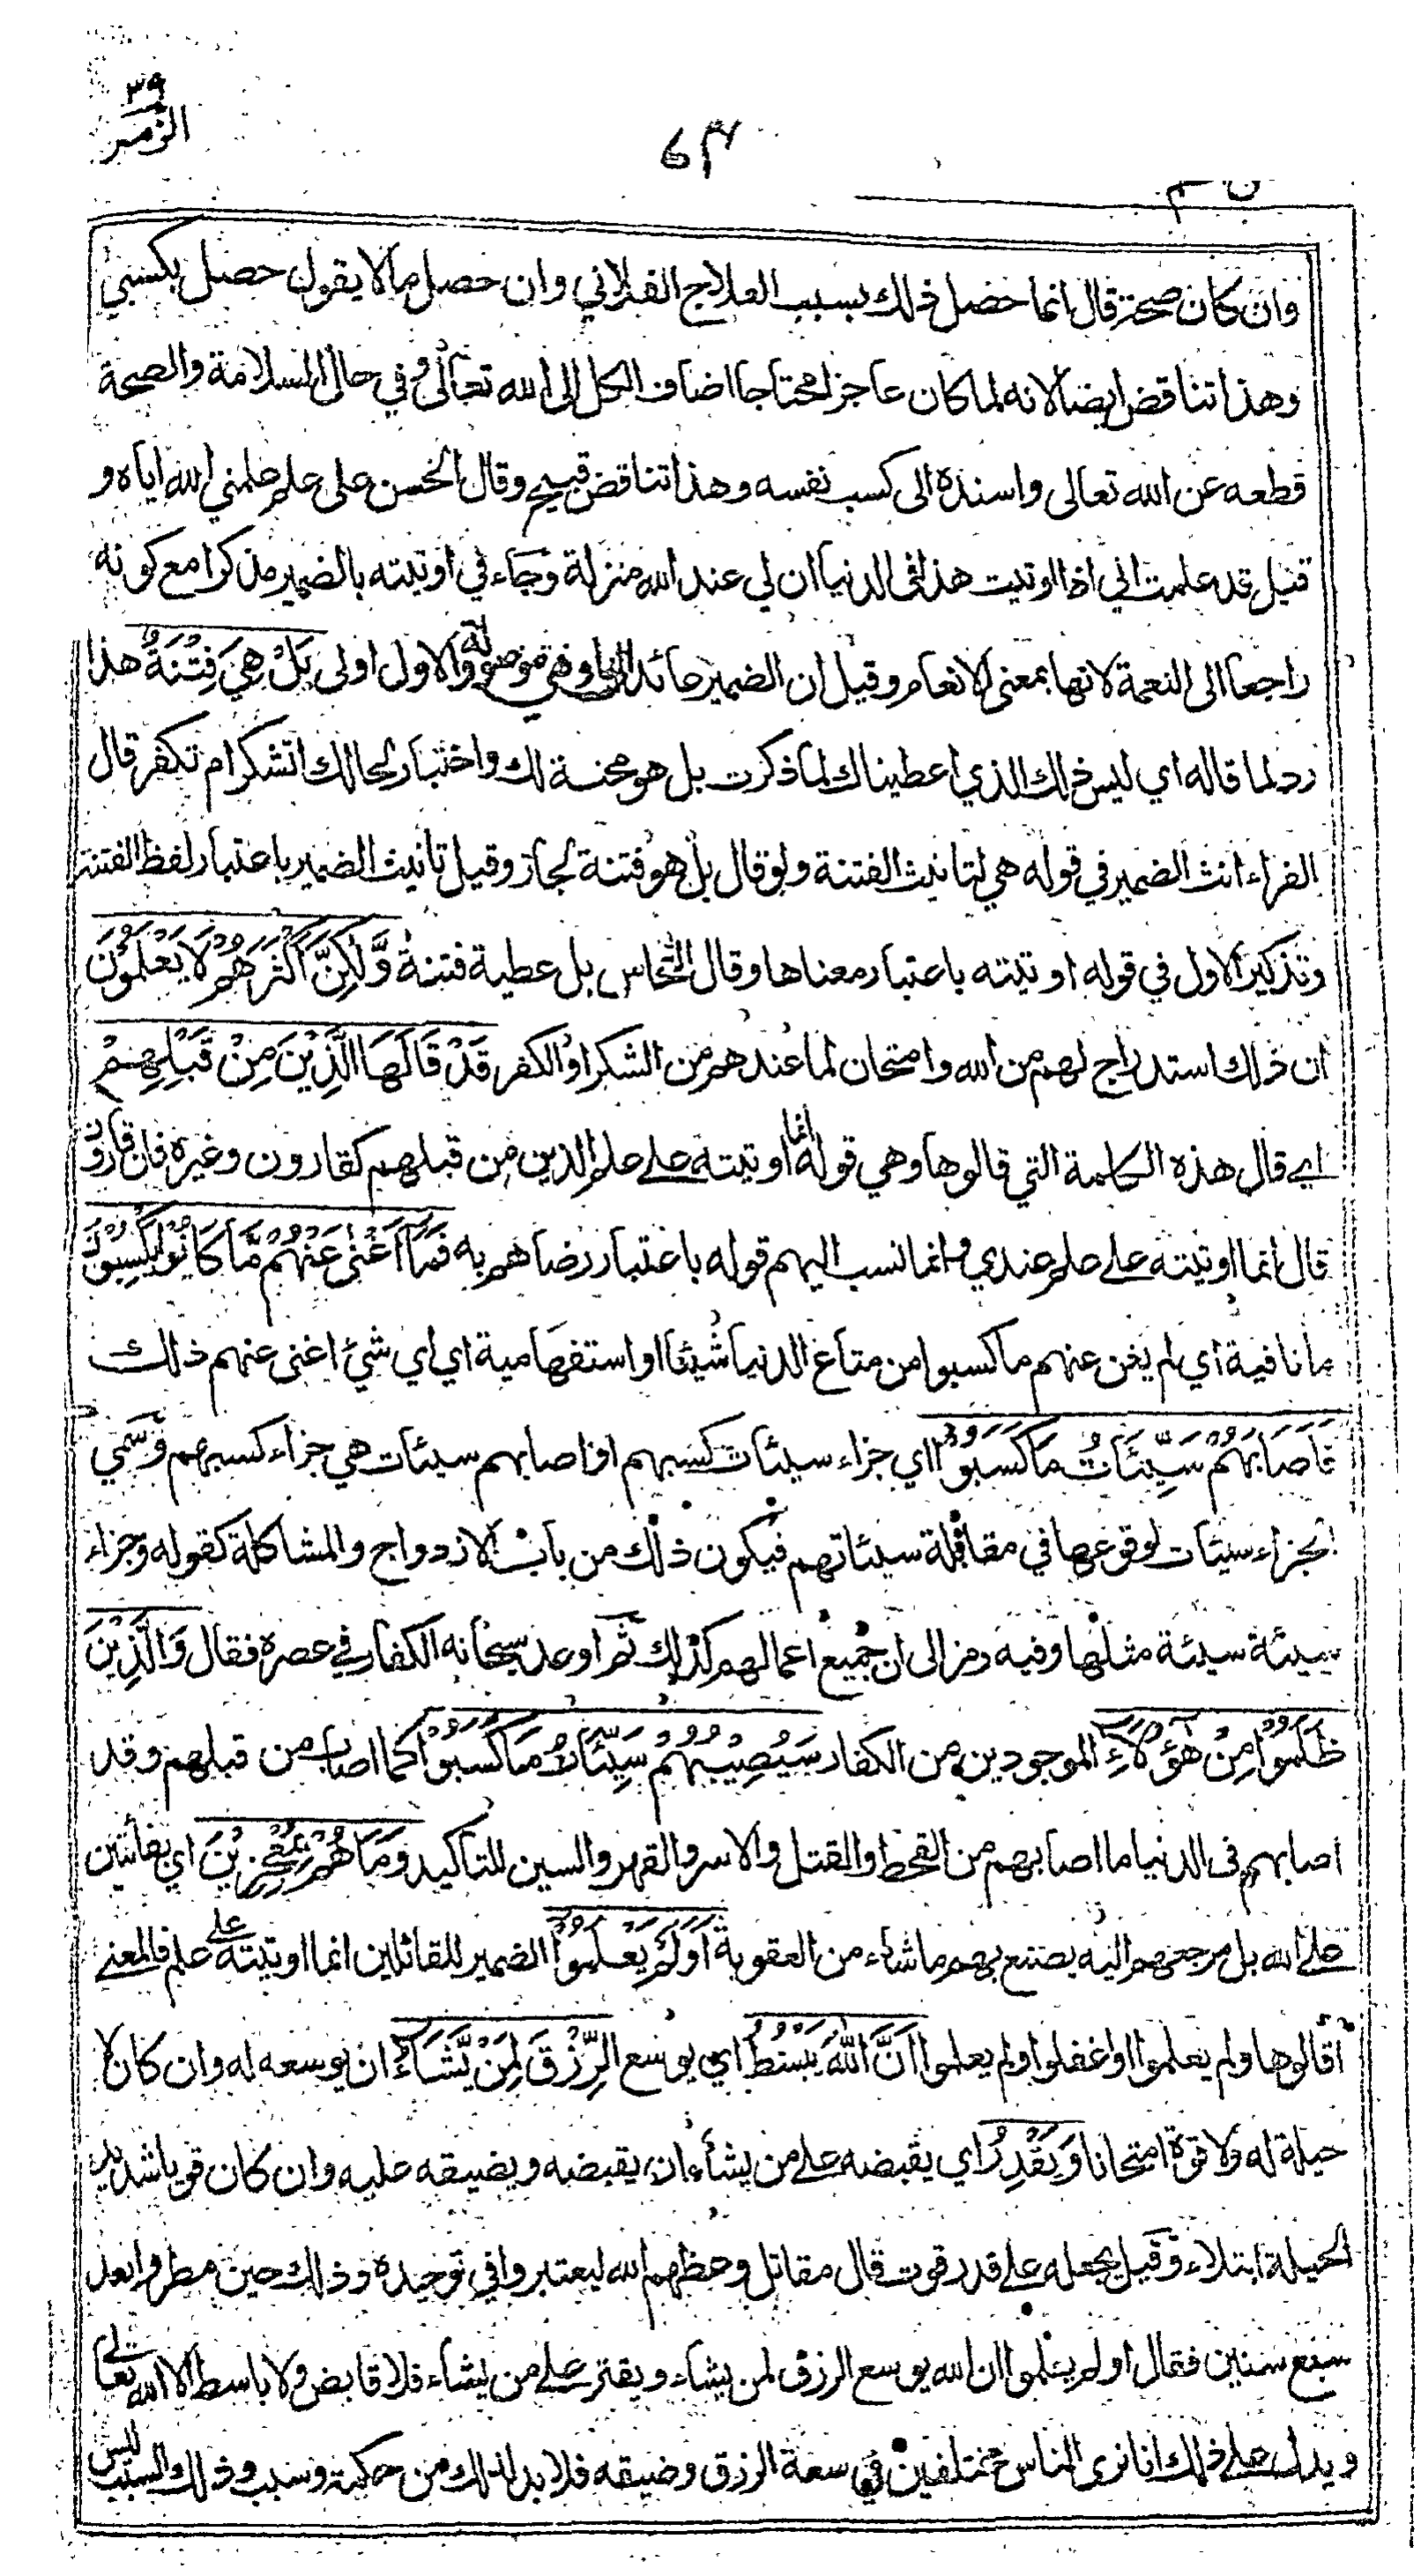 ٣٩
الزمر
وان كان صحة قال انما حصل ذلك بسبب العلاج الفلاني وان حصل مالا يقول حصل بكسبي
وهذا تناقض ايضا لانه لما كان عاجزا محتاجا اضاف الكل الى الله تعالى وفي حال السلامة والصحة
قطعه عن الله تعالى واسنده الى كسب نفسه وهذا تناقض قبيح وقال الحسن على علم علمني الله اياه و
قيل قد علمت اني اذا اوتيت هذا في الدنيا ان لي عند الله منزلة وجاء في اوتيته بالضمير مذكرا مع كونه
راجعا الى النعمة لانها بمعنى الانعام وقيل ان الضمير عائد الى ما وهي موصولة والاول اولى بَلْ هِيَ فِتْنَةٌ هذا
رد لما قاله اي ليس ذلك الذي اعطيناك لما ذكرت بل هو محنة لك واختبار لحالك اتشكر ام تكفر قال
الفراء انث الضمير في قوله هي لتانيث الفتنة ولو قال بل هو فتنة لجاز وقيل تانيث الضمير باعتبار لفظ الفتنة
وتذكير الاول في قوله اوتيته باعتبار معناها وقال النحاس بل عطية فتنة وَّلٰكِنَّ اَكْثَرَهُمْ لَا يَعْلَمُوْنَ
ان ذلك استدراج لهم من الله وامتحان لما عندهم من الشكر او الكفر قَدْ قَالَهَا الَّذِيْنَ مِنْ قَبْلِهِمْ
اي قال هذه الكلمة التي قالوها وهي قوله انما اوتيته على علم الذين من قبلهم كقارون وغيره فان قارون
قال انما اوتيته على علم عندي وانما نسب اليهم قوله باعتبار رضاهم به فَمَا اَغْنٰى عَنْهُمْ مَّا كَانُوْا يَكْسِبُوْنَ
ما نافية اي لم يغن عنهم ما كسبوا من متاع الدنيا شيئا او استفهامية اي اي شيء اغنى عنهم ذلك
فَاَصَابَهُمْ سَيِّئَاتُ مَا كَسَبُوْا اي جزاء سيئات كسبهم او اصابهم سيئات هي جزاء كسبهم وسمي
الجزاء سيئات لوقوعها في مقابلة سيئاتهم فيكون ذلك من باب الازدواج والمشاكلة كقوله وجزاء
سيئة سيئة مثلها وفيه رمز الى ان جميع اعمالهم كذلك ثم اوعد سبحانه الكفار في عصره فقال وَالَّذِيْنَ
ظَلَمُوْا مِنْ هٰٓؤُلَاءِ الموجودين من الكفار سَيُصِيْبُهُمْ سَيِّئَاتُ مَا كَسَبُوْا كما اصاب من قبلهم وقد
اصابهم في الدنيا ما اصابهم من القحط والقتل والاسر والقهر والسين للتاكيد وَمَا هُمْ بِمُعْجِزِيْنَ اي بفائتين
على الله بل مرجعهم اليه يصنع بهم ما شاء من العقوبة اَوَلَمْ يَعْلَمُوْا الضمير للقائلين انما اوتيته على علم فالمعنى
أقالوها ولم يعلموا او اغفلوا ولم يعلموا اَنَّ اللّٰهَ يَبْسُطُ اي يوسع الرِّزْقَ لِمَنْ يَّشَاءُ ان يوسعه له وان كان لا
حيلة له ولا قوة امتحانا وَيَقْدِرُ اي يقبضه على من يشاء ان يقبضه ويضيقه عليه وان كان قويا شديد
الحيلة ابتلاء وقيل يجعله على قدر قوت قال مقاتل وعظهم الله ليعتبروا في توحيده وذلك حين مطروا بعد
سبع سنين فقال اولم يعلموا ان الله يوسع الرزق لمن يشاء ويقتر على من يشاء فلا قابض ولا باسط الا الله تعالى
ويدل على ذلك انا نرى الناس مختلفين في سعة الرزق وضيقه فلا بد لذلك من حكمة وسبب وذلك السبب ليس